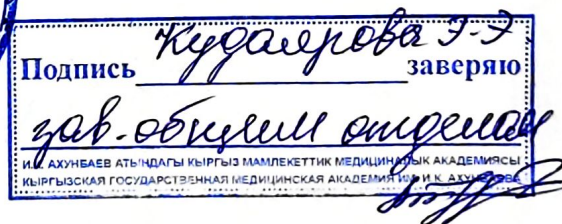 Кудаярова Э.Э.
Подпись заверяю
зав. общим отделом
И.К. АХУНБАЕВ АТЫНДАГЫ КЫРГЫЗ МАМЛЕКЕТТИК МЕДИЦИНАЛЫК АКАДЕМИЯСЫ
КЫРГЫЗСКАЯ ГОСУДАРСТВЕННАЯ МЕДИЦИНСКАЯ АКАДЕМИЯ ИМ. И.К. АХУНБАЕВА